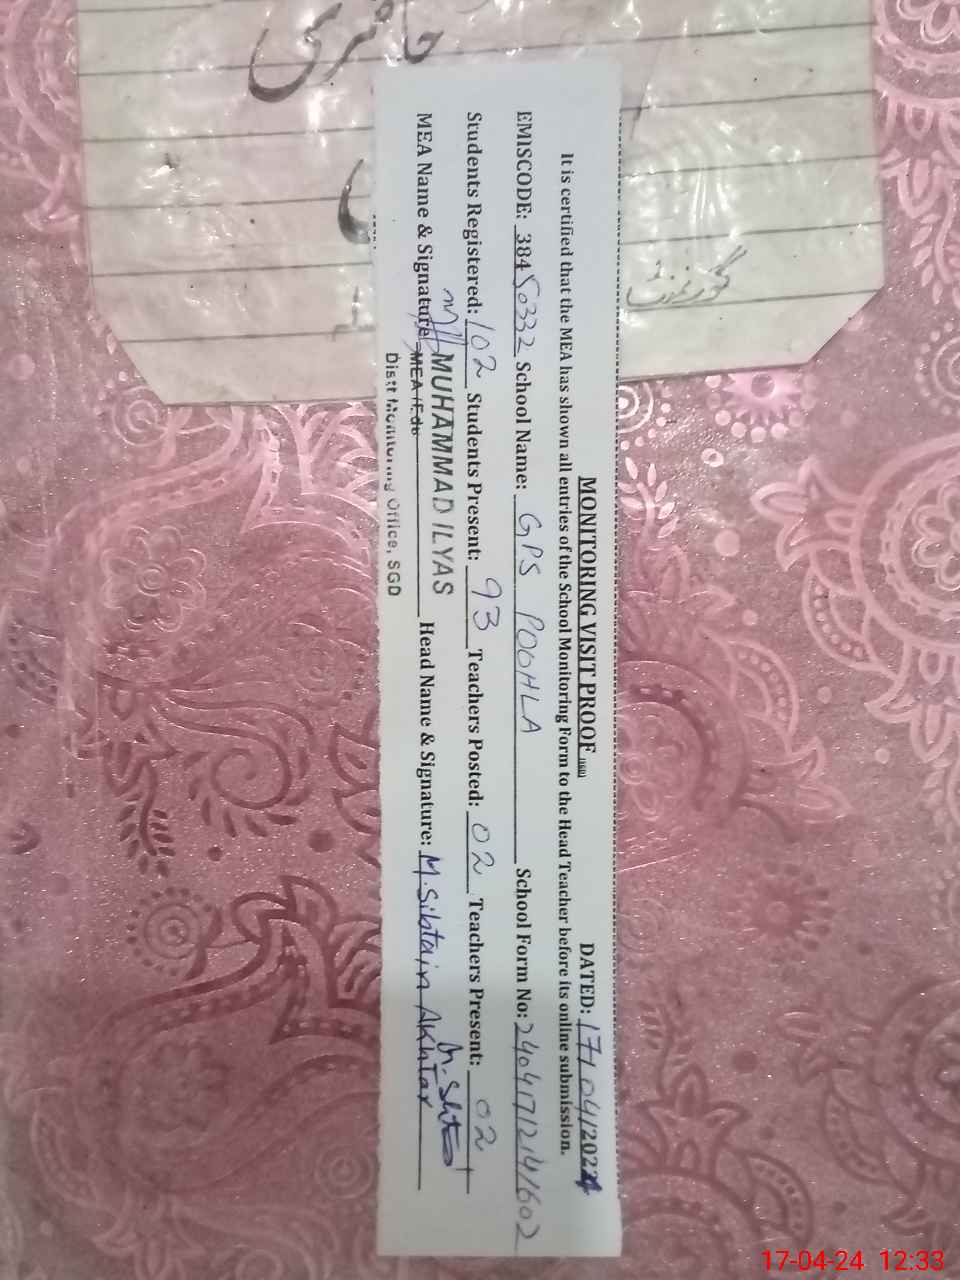 حاضری
گورنمنٹ
MONITORING VISIT PROOF DATED: 17/04/2024
It is certified that the MEA has shown all entries of the School Monitoring Form to the Head Teacher before its online submission.
EMISCODE: 38450332 School Name: GPS POOHLA School Form No: 24041712141602
Students Registered: 102 Students Present: 93 Teachers Posted: 02 Teachers Present: 02
MEA Name & Signature: MUHAMMAD ILYAS Head Name & Signature: M. Sibtain Akhtar
MEA
Distt Monitoring Office, SGD
17-04-24 12:33